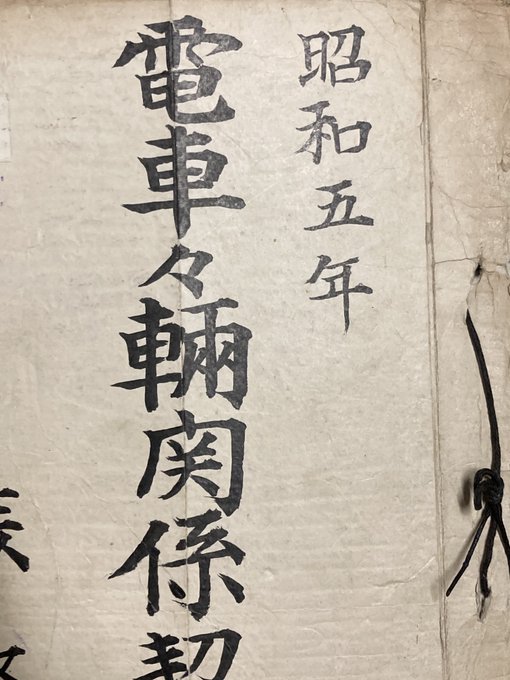 昭和五年
電車々輛関係契